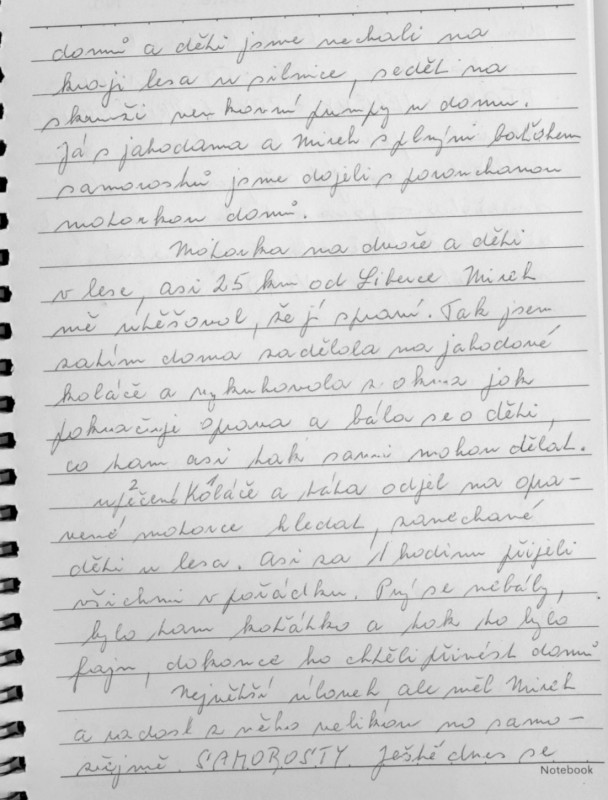 domů a děti jsme nechali na
kraji lesa u silnice, sedět na
skruži venkovní pumpy u domu.
Já s jahodama a Mirek s plným baťohem
samorostů jsme dojeli s porouchanou
motorkou domů.
Motorka na dvoře a děti
v lese, asi 25 km od Liberce Mirek
mě utěšoval, že jí spraví. Tak jsem
zatím doma zadělala na jahodové
koláče a vykukovala z okna jak
pokračuje oprava a bála se o děti,
co tam asi tak sami mohou dělat.
upečené 2 Koláče 1 a táta odjel na opra-
vené motorce hledat, zanechané
děti u lesa. Asi za 1 hodinu přijeli
všichni v pořádku. Prý se nebály,
bylo tam koťátko a tak to bylo
fajn, dokonce ho chtěli přivést domů
Největší úlovek, ale měl Mirek
a radost z něho velikou no samo-
zřejmě. SAMOROSTY. Ještě dnes se
Notebook